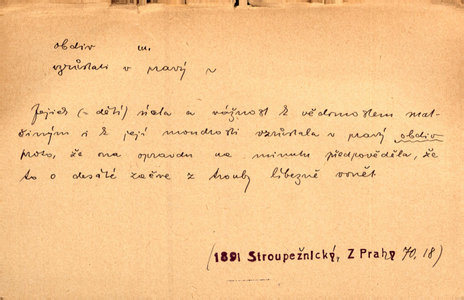 obdiv m.
vzrůstati v pravý ~
Jejich (= dětí) úcta a vážnost k vědomostem mat-
činým i k její moudrosti vzrůstala v pravý obdiv
proto, že ona opravdu na minutu předpověděla, že
to o desáté začne z trouby líbezně vonět
(1891 Stroupežnický, Z Prahy 70. 18)